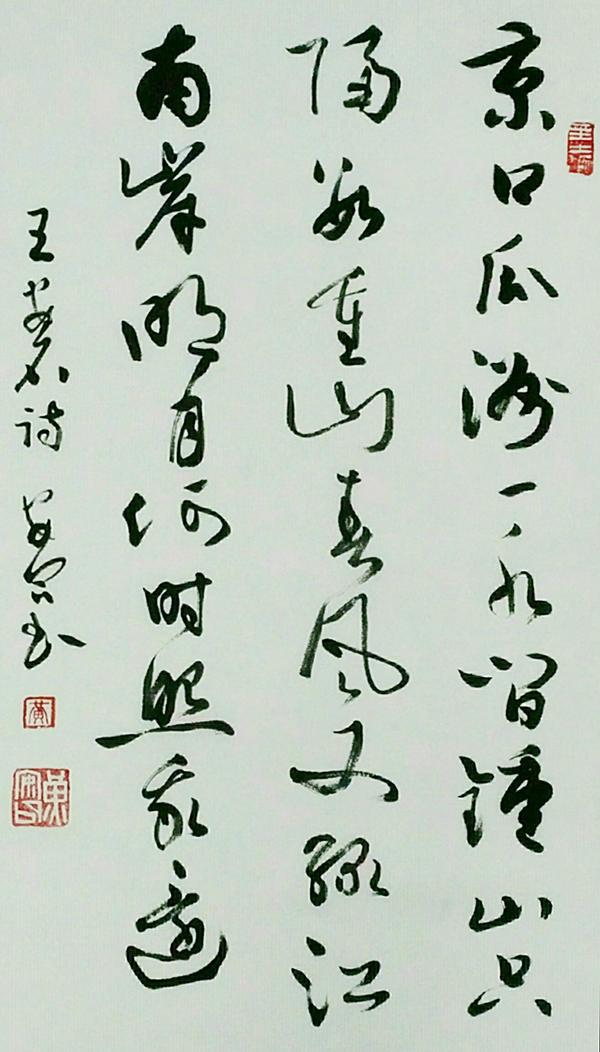 京口瓜洲一水间鍾山只
隔数重山春风又绿江
南岸明月何时照我還
王安石诗 安书
黄